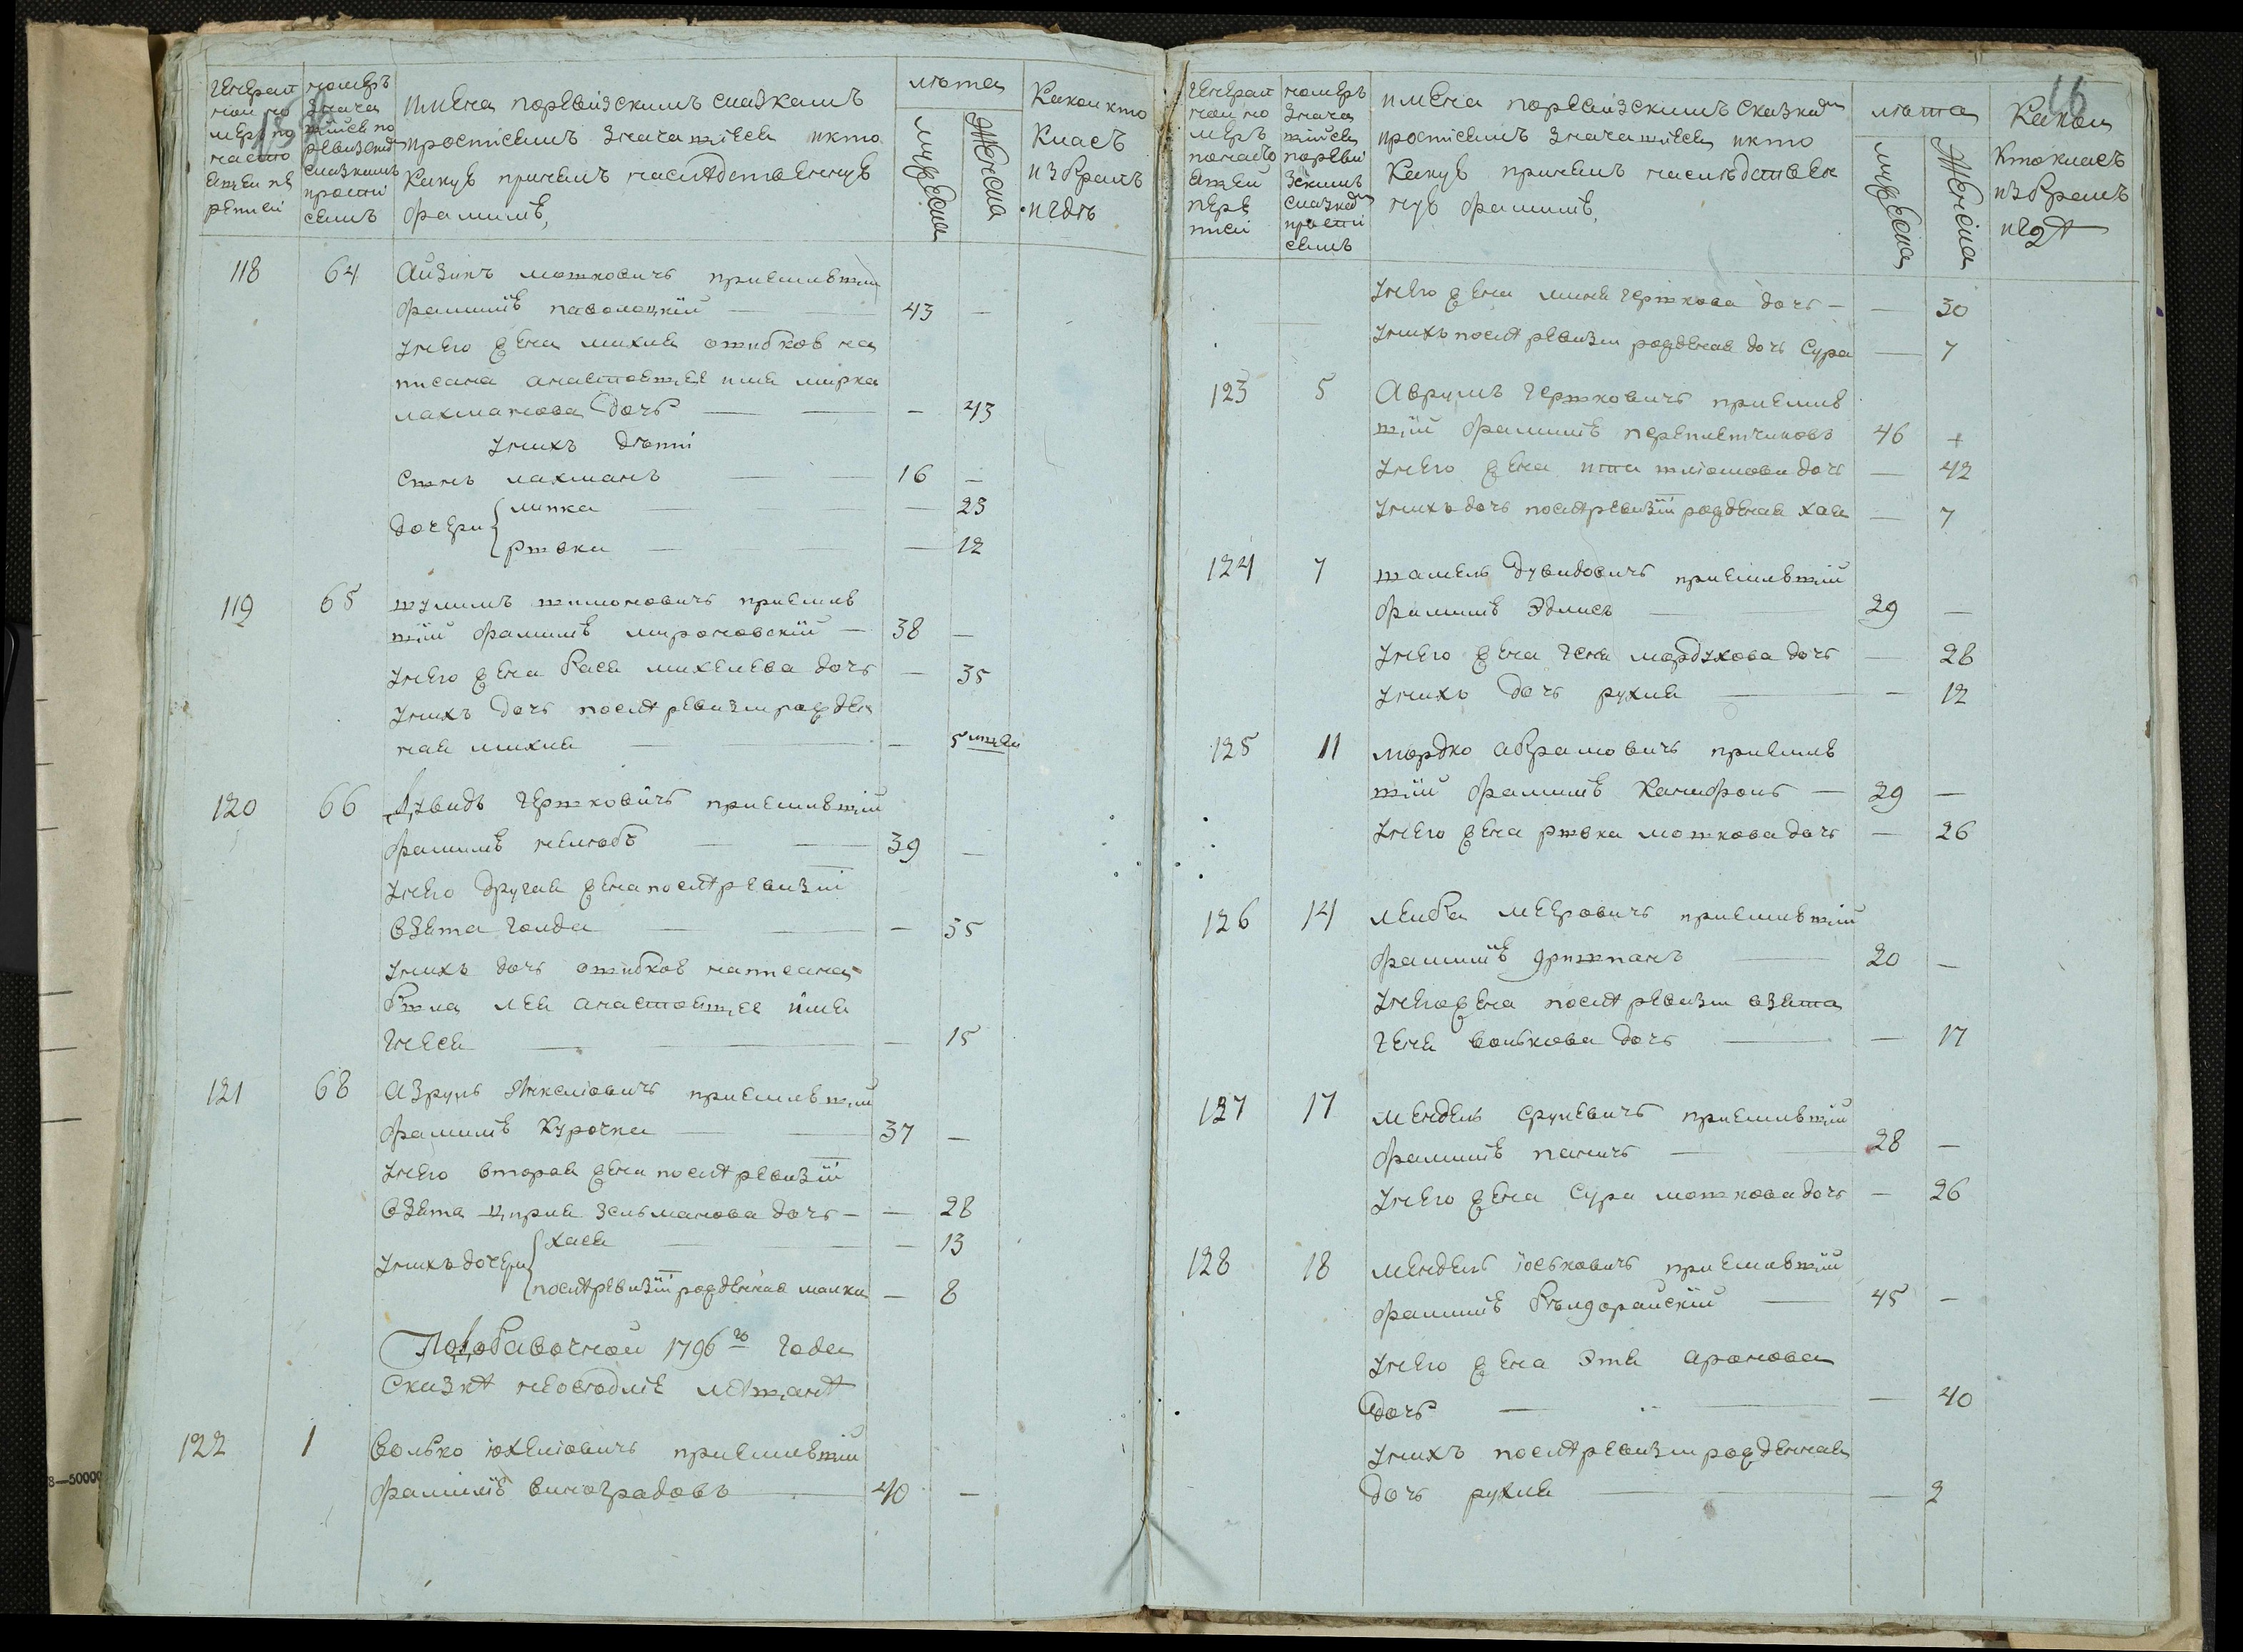 15
Генерал
ной но
меръ по
насто
ящей пе
реписи
номеръ
знача
щийся по
ревизским
сказкамъ
и росписямъ
имена по ревизскимъ сказкамъ
и росписямъ значащиеся и кто
какую принялъ наследственную
фамилию,
лета
мужеска
женска
Какои кто
класъ
избралъ
и где
118 64 Айзикъ мошковичъ принявший
фамилию паволоцкий — 43 —
у него жена михля ошибкою на
писана а настоящее имя мирка
лахманова дочь — — 43
у них дети
сынъ лахманъ — 16 —
дочери липка — — 23
рывка — — 12
119 65 шулимъ шимоновичъ приняв
ший фамилию мироновский — 38 —
у него жена бася михелева дочь — 35
у нихъ дочь после ревизии рожден
ная михля — — 5
120 66 Дувидъ гершковичъ принявший
фамилию нелюбъ — 39 —
у него другая жена после ревизии
взята голда — — 35
у нихъ дочь ошибкою написана
была лея а настоящее имя
гнеся — — 15
121 68 Азруль Янкелiовичъ принявший
фамилию Курочка — 37 —
у него вторая жена после ревизии
взята ципря зельманова дочь — — 28
у нихъ дочери хася — — 13
после ревизии рожденная малка — 8
По добавочной 1796го года
сказке
122 1 Волько iохелiовичъ принявший
фамилию виноградовъ — 40 —
16
Генерал
ной но
меръ
по насто
ящей
пере
писи
номеръ
знача
щийся
по реви
зскимъ
сказкам
и роспи
сямъ
имена по ревизскимъ сказкам
и росписямъ значащиеся и кто
какую принялъ наследствен
ную фамилию,
лета
мужеска
женска
Какои
кто класъ
избралъ
и где
у него жена миня гершкова дочь — — 30
у нихъ после ревизии рожденая дочь Сура — 7
123 5 Аврумъ гершковичъ приняв
ший фамилию переплетчиковъ 46 +
у него жена ита шлiомова дочь — 42
у нихъ дочь после ревизии рожденая хая — 7
124 7 шамель дувидовичъ принявший
фамилию Эдлисъ — 29 —
у него жена геня мордухова дочь — 28
у нихъ дочь рухля — — 12
125 11 мордко абрамовичъ приняв
ший фамилию Канифоль — 29 —
у него жена рывка мошкова дочь — 26
126 14 лейба мееровичъ принявший
фамилию — 20 —
у него жена после ревизии взята
геня волькова дочь — — 17
127 17 мендель срулевичъ принявший
фамилию паничъ — 28 —
у него жена Сура мошкова дочь — 26
128 18 мендель iоськовичъ принявший
фамилию — 45 —
у него жена Этя аронова
дочь — — 40
у нихъ после ревизии рожденная
дочь рухля — — 2
8—50000